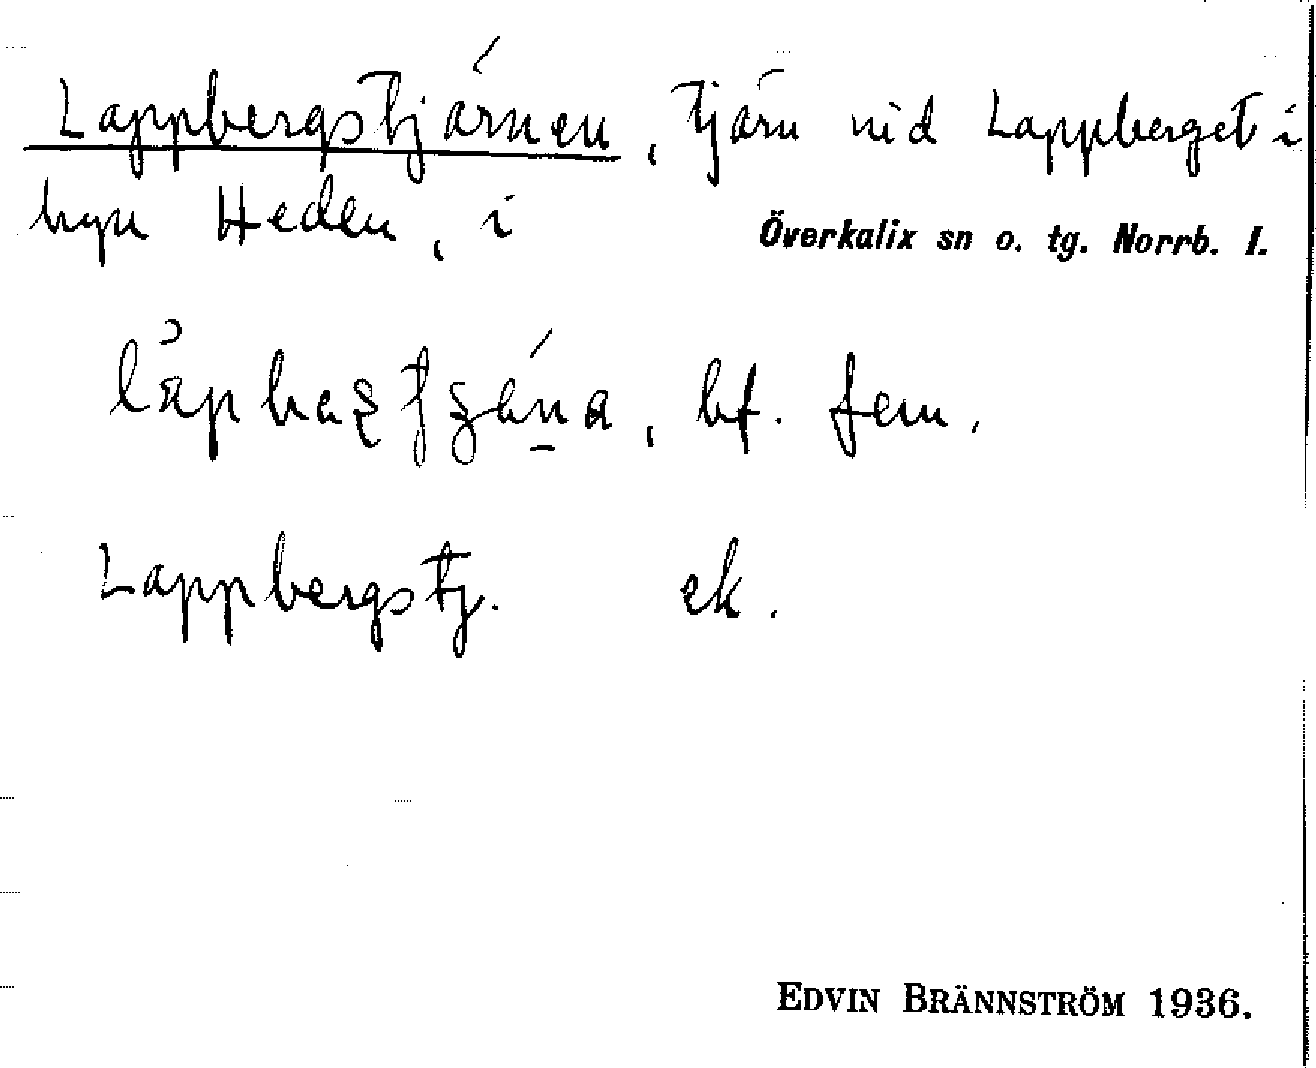 Lappbergstjärnen, tjärn vid Lappberget i
byn Heden, i
Överkalix sn o. tg. Norrb. l.
bf. fem.
Lappbergstj. ek.
EDVIN BRÄNNSTRÖM 1936.